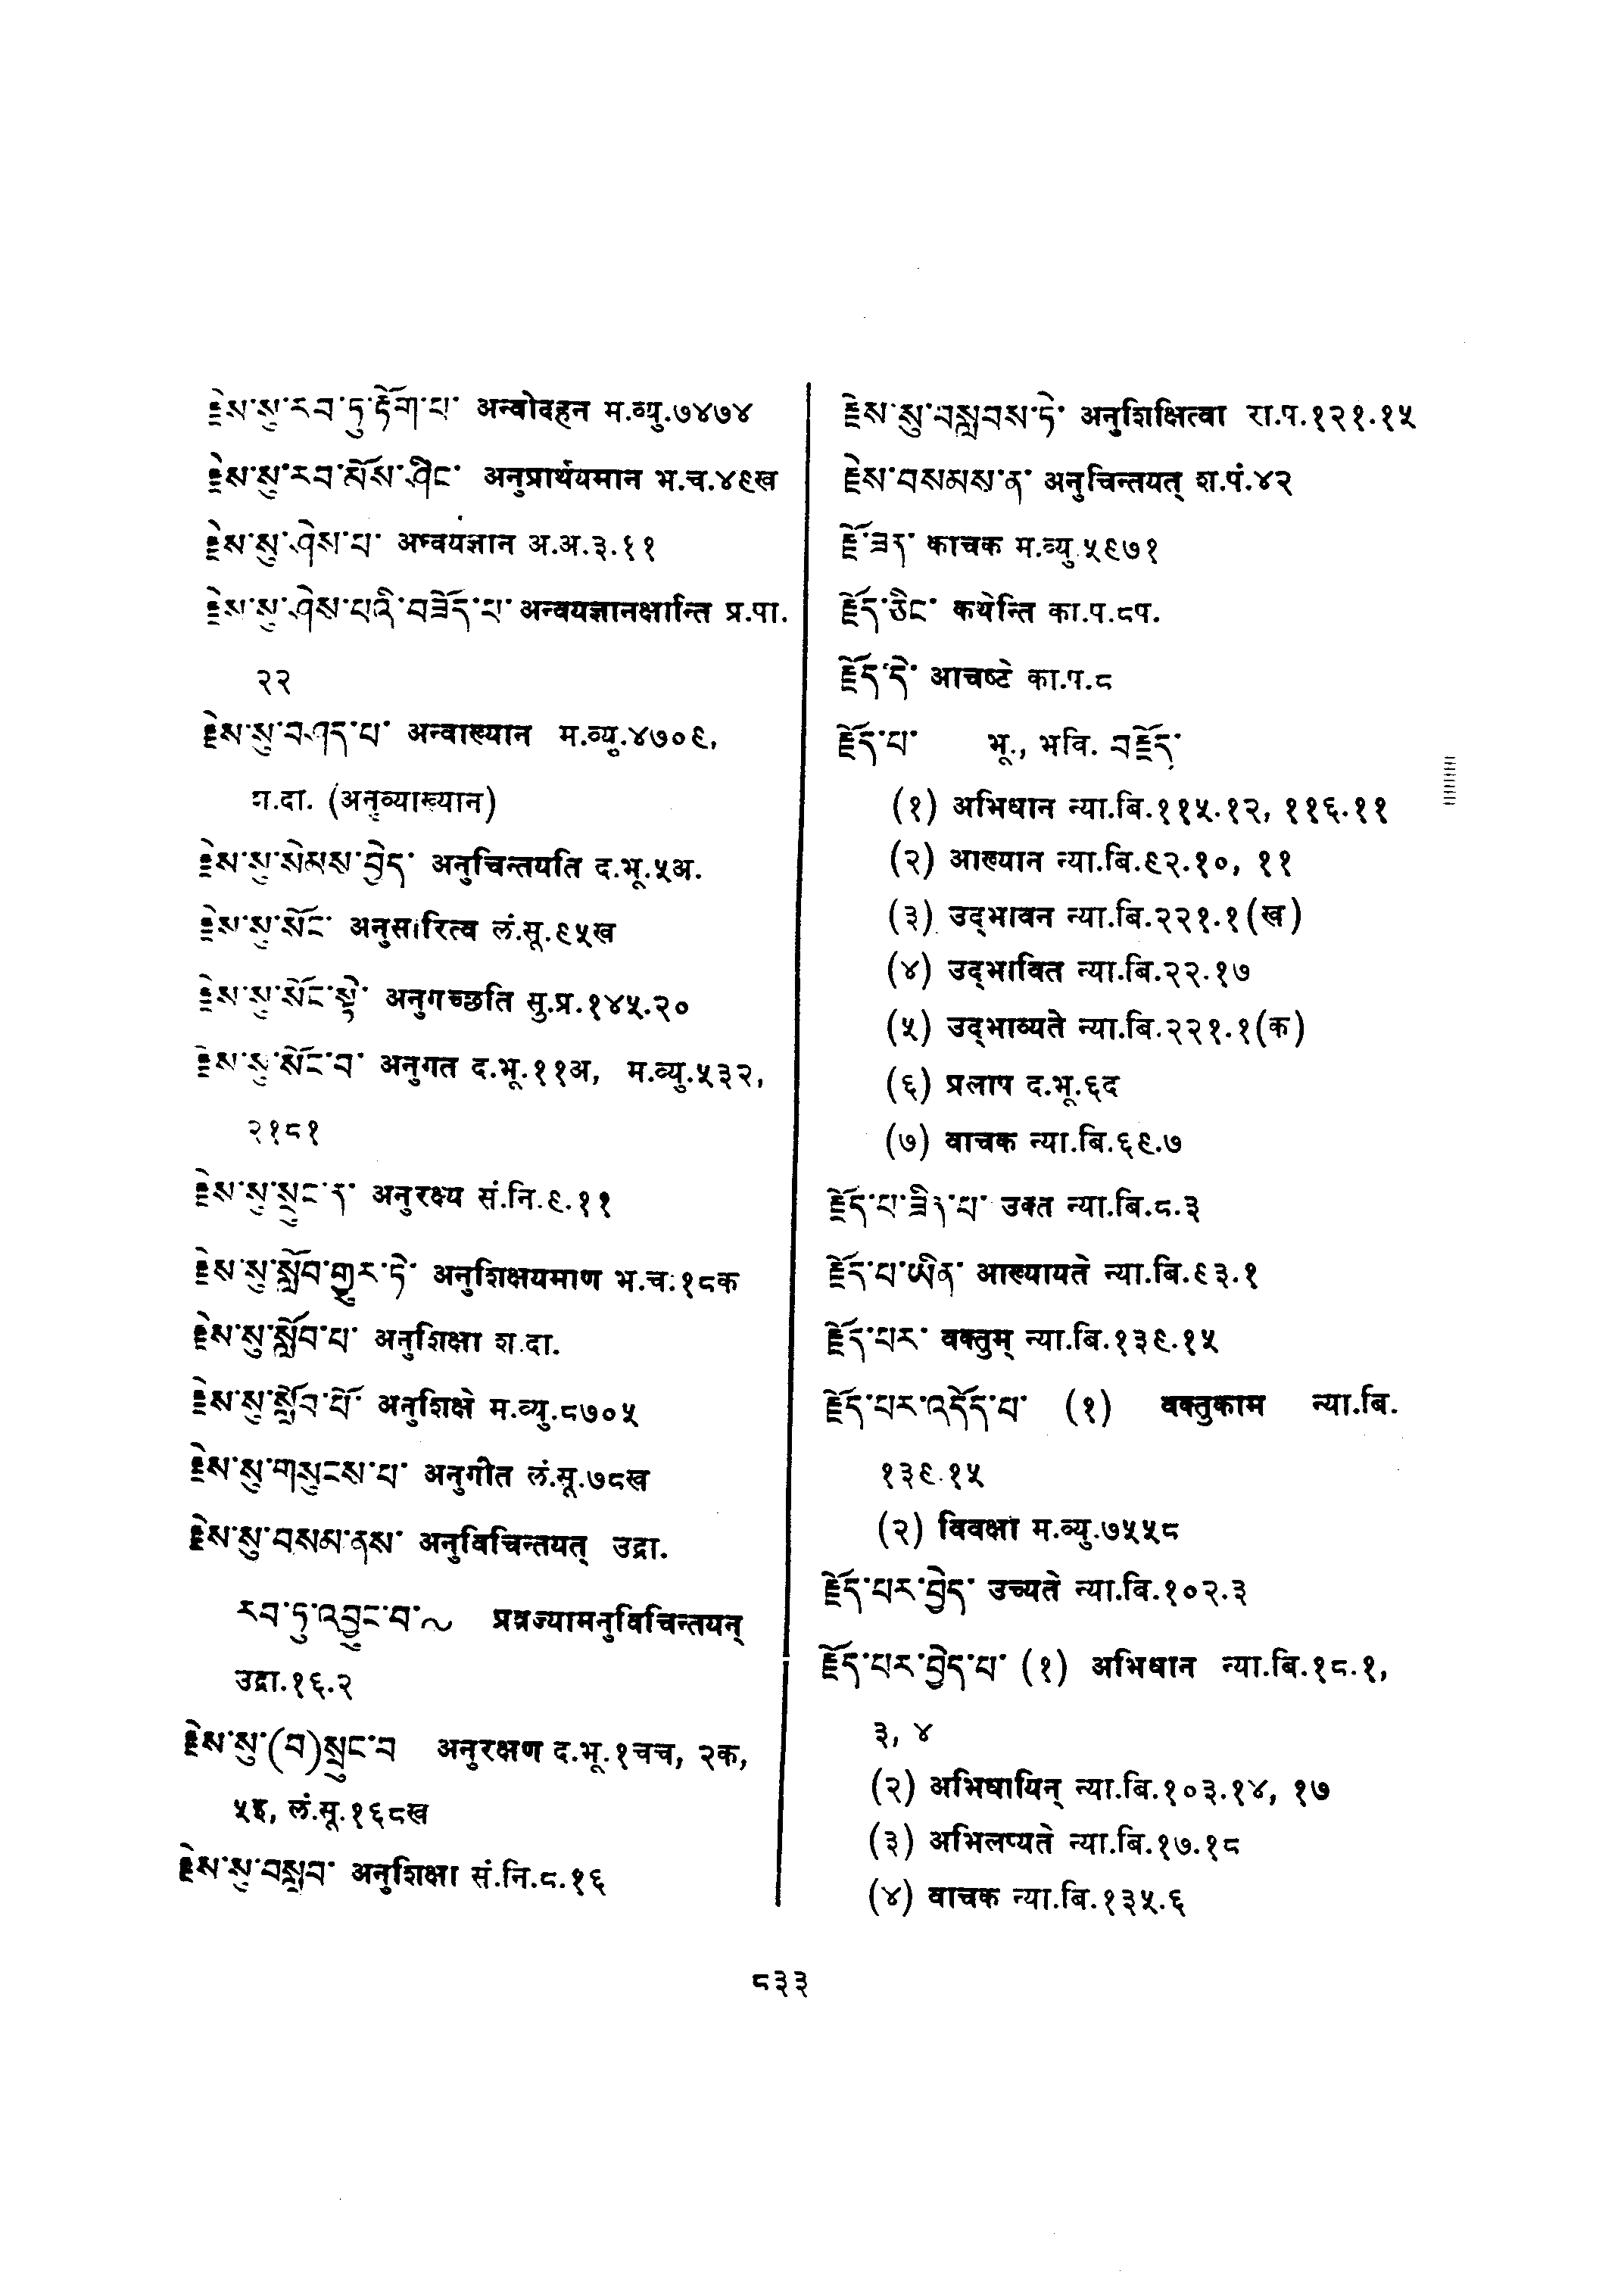 རྗེས་སུ་རབ་ཏུ་རྟོག་པ་ अन्वोदहन म.व्यु.७४७४
རྗེས་སུ་རབ་མོས་ཤིང་ अनुप्रार्थयमान भ.च.४९ख
རྗེས་སུ་ཤེས་པ་ अन्वयज्ञान अ.अ.३.११
རྗེས་སུ་ཤེས་པའི་བཟོད་པ་ अन्वयज्ञानक्षान्ति प्र.पा.
२२
རྗེས་སུ་བཤད་པ་ अन्वाख्यान म.व्यु.४७०९,
श.दा. (अनुव्याख्यान)
རྗེས་སུ་སེམས་བྱེད་ अनुचिन्तयति द.भू.५अ.
རྗེས་སུ་སོང་ अनुसारित्व लं.सू.९५ख
རྗེས་སུ་སོང་སྟེ་ अनुगच्छति सु.प्र.१४५.२०
རྗེས་སུ་སོང་བ་ अनुगत द.भू.११अ, म.व्यु.५३२,
२१८१
རྗེས་སུ་སྲུང་ན་ अनुरक्ष्य सं.नि.९.११
རྗེས་སུ་སློབ་གྱུར་ཏེ་ अनुशिक्षयमाण भ.च.१८क
རྗེས་སུ་སློབ་པ་ अनुशिक्षा श.दा.
རྗེས་སུ་སློབ་པོ་ अनुशिक्षे म.व्यु.८७०५
རྗེས་སུ་གསུངས་པ་ अनुगीत लं.सू.७८ख
རྗེས་སུ་བསམ་ནས་ अनुविचिन्तयत् उद्रा.
རབ་ཏུ་འབྱུང་བ་~ प्रव्रज्यामनुविचिन्तयन्
उद्रा.१६.२
རྗེས་སུ་(བ)སྲུང་བ अनुरक्षण द.भू.१चच, २क,
५इ, लं.सू.१६८ख
རྗེས་སུ་བསླབ་ अनुशिक्षा सं.नि.८.१६
རྗེས་སུ་བསླབས་ཏེ་ अनुशिक्षित्वा रा.प.१२१.१५
རྗེས་བསམས་ན་ अनुचिन्तयत् श.पं.४२
རྗོ་ཟར་ काचक म.व्यु.५९७१
རྗོད་ཅིང་ कथेन्ति का.प.८प.
རྗོད་དེ་ आचष्टे का.प.८
རྗོད་པ་ भू., भवि. བརྗོད་
(१) अभिधान न्या.बि.११५.१२, ११६.११
(२) आख्यान न्या.बि.९२.१०, ११
(३) उद्‌भावन न्या.बि.२२१.१(ख)
(४) उद्‌भावित न्या.बि.२२.१७
(५) उद्‌भाव्यते न्या.बि.२२१.१(क)
(६) प्रलाप द.भू.६द
(७) वाचक न्या.बि.६९.७
རྗོད་པ་ཟིན་པ་ उक्त न्या.बि.८.३
རྗོད་པ་ཡིན་ आख्यायते न्या.बि.९३.१
རྗོད་པར་ वक्तुम् न्या.बि.१३९.१५
རྗོད་པར་འདོད་པ་ (१) वक्तुकाम न्या.बि.
१३९.१५
(२) विवक्षा म.व्यु.७५५८
རྗོད་པར་བྱེད་ उच्यते न्या.बि.१०२.३
རྗོད་པར་བྱེད་པ་ (१) अभिधान न्या.बि.१८.१,
३, ४
(२) अभिधायिन् न्या.बि.१०३.१४, १७
(३) अभिलप्यते न्या.बि.१७.१८
(४) वाचक न्या.बि.१३५.६
८३३